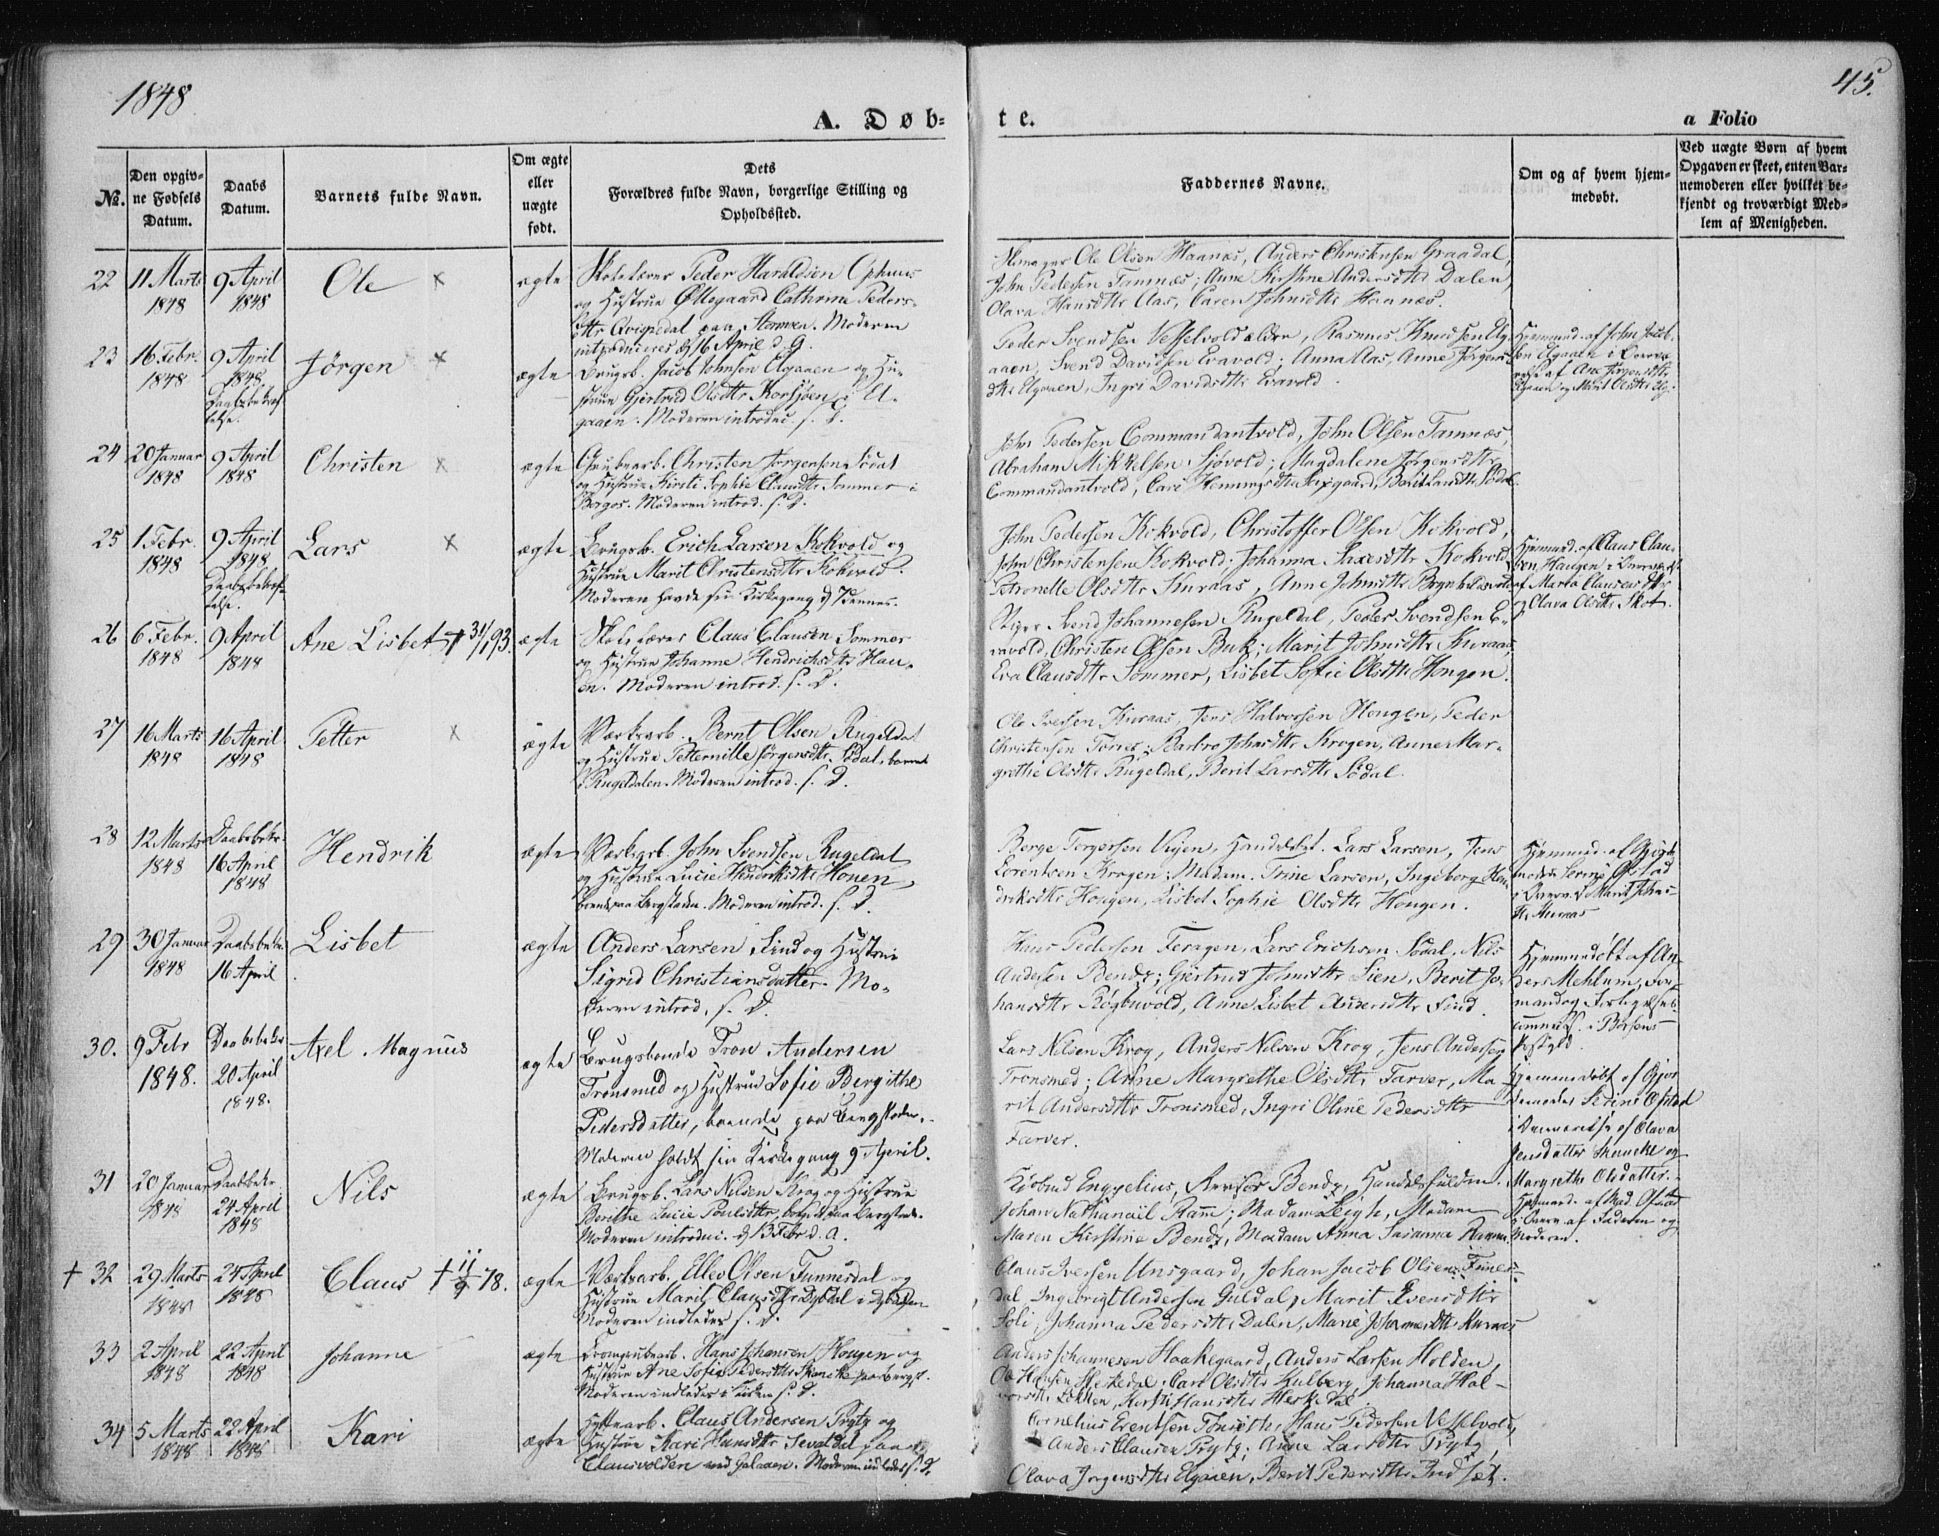 1848
45.
A. Døb-
te.
a Folio
No.
Den opgiv-
ne Fødsels
Datum.
Daabs
Datum.
Barnets fulde Navn.
Om ægte
eller
uægte
født.
Dets
Forældres fulde Navn, borgerlige Stilling og
Opholdssted.
Faddernes Navne.
Om og af hvem hjem-
medøbt.
Ved uægte Børn af hvem
Opgaven er skeet, enten Bar-
nemoderen eller hvilket be-
kjendt og troværdigt Med-
lem af Menigheden.
22
11 Marts
1848
9 April
1848
Ole ×
ægte
Skolelærer Peder Haraldsen
og Hustrue Øllegaard Cathrine Peders-
dttr paa Moderen
introduceres d 16 April d. A.
Ole Olsen Haanæs, Anders Christensen Graadal,
John Pedersen Tamnæs; Anne Kirstine Andersdttr Dalen,
Olava Hansdttr Aas, Caren Johnsdttr Haanæs.
23
16 Febr.
1848
9 April
1848
Daabsbekræf-
telse.
Jörgen ×
ægte
Brugsb. Jacob Johnsen Elgaaen og Hu-
strue Gjertrud Olsdttr Korssjøen i El-
gaaen. Moderen introduc. s. D.
Peder Svendsen Vesselvold ældre, Rasmus Knudsen Elg-
aaen, Svend Davidsen Evavold; Anna Aas, Anne Jörgens-
dttr Elgaaen, Ingri Davidsdttr Evavold.
Hjemmed. af John Jacob-
sen Elgaaen i Overvæ-
relse af Ane Jörgensdttr
Elgaaen og Marit Olsdttr Elg.
24
20 Januar
1848
9 April
1848
Christen ×
ægte
Grubearb. Christen Jörgensen Södal
og Hustrue Kirsti Sophie Clausdttr Sommer i
Borgos. Moderen introd. s. D.
John Pedersen Commandantvold, John Olsen Tamnæs,
Abraham Mikkelsen Sjøvold; Magdalene Jörgensdttr
Commandantvold, Cari Henningsdttr Berit Larsdttr Södal
25
1 Febr.
1848
9 April
1848
Daabsbekræf-
telse.
Lars ×
ægte
Brugsb. Erich Larsen Kokvold og
Hustrue Marit Christensdttr Kokvold.
Moderen havde sin Kirkegang
John Pedersen Kokvold, Christoffer Olsen Kokvold,
John Christensen Kokvold; Johanna Kokvold
Petronelle Olsdttr Kuraas, Anne Johnsdttr
Hjemmed. af Claus Clau-
sen Haugen i Overværelse
af Marta Clausens Dttr
og Olava Olsdttr Skot.
26
6 Febr.
1848
9 April
1848
Ane Lisbet † 31/1 93.
ægte
Skolelærer Claus Clausen Sommer
og Hustrue Johanne Hendrichsdttr Hau-
en. Moderen introd. s. D.
Svend Johannesen Rugeldal, Peder Svendsen E-
vavold, Christen Olsen Buk; Marit Johnsdttr Kuraas,
Eva Clausdttr Sommer, Lisbet Sofie Olsdttr Hougen.
27
16 Marts
1848
16 April
1848
Petter ×
ægte
Værksarb. Bernt Olsen Rugeldal
og Hustrue Petternille Jörgensdttr Södal, boende
i Rugeldalen. Moderen introd. s. D.
Ole Iversen Kuraas, Jens Halvorsen Hougen, Peder
Christensen Barbro Johnsdttr Krogen, Anne Mar-
grethe Olsdttr Rugeldal, Berit Larsdttr Södal.
28
12 Marts
1848
Daabsbekr.
16 April
1848
Hendrik
ægte
Værksarb. John Svendsen Rugeldal
og Hustrue Lucie Hendriksdttr Houen,
boende paa Bergstaden. Moderen introd. s. D.
Borge Torgersen Vigen, Lars Larsen, Jens
Lorentsen Krogen; Madam Trine Larsen, Ingeborg Hen-
driksdttr Hougen, Lisbet Sophie Olsdttr Hougen.
Hjemmed. af Gjorde-
moder Serine Ofstad
i Overv. af Marit Johns-
dttr Kuraas
29
30 Januar
1848
Daabsbekr.
16 April
Lisbet
ægte
Anders Larsen Lind og Hustrue
Sigrid Christiansdatter. Mo-
deren introd. s. D.
Hans Pedersen Feragen, Lars Erichsen Södal, Nils
Andersen Bendz; Gjertrud Johnsdttr Lien, Berit Jo-
hansdttr Anne Lisbet Andersdttr Lind.
Hjemmedöbt af An-
ders Mehlum, For-
mand og
i Børsens
30.
9 Febr
1848.
Daabsbekr
20 April
1848.
Axel Magnus
ægte
Brugsbonde Tron Andersen
Tronsmed og Hustrue Sofie Bergithe
Pedersdatter, boende paa Bergstaden.
Moderen holdt sin Kirkegang 9 April.
Lars Nilsen Krog, Anders Nilsen Krog, Jens Andersen
Tronsmed; Anne Margrethe Olsdttr Farver, Ma-
rit Andersdttr Tronsmed, Ingri Oline Pedersdttr
Farver.
Hjemmedöbt af Gjor-
demoder Serine Ofstad
i Overværelse af Olava
Jensdatter Skancke og
Margrethe Olsdatter.
31
20 Januar
1848
Daabsbekr.
24 April
1848
Nils
ægte
Brugsb. Lars Nilsen Krog og Hustrue
Berithe Lucie Poulsdttr, boende paa Bergstaden.
Moderen introduc. d 13 Febr d. A.
Kjøbmd Engzelius, Bendz,
Johan Nathanäil Ramm; Madam Leigh, Madam
Maren Kirstine Bendz, Madam Anna Susanna Ramm.
Hjemmed. af Mad. Ofstad
i Overv. af Faderen og
Moderen.
† 32
29 Marts
1848
24 April
1848
Claus † 11/9 78.
ægte
Værksarb. Ellev Olsen Funnesdal og
Hustrue Marit Clausdttr Dybdal i
Moderen indledes s. D.
Claus Iversen Unsgaard, Johan Jacob Olsen Funes-
dal, Ingebrigt Andersen Guldal; Marit Evensdttr
Soli, Johanna Pedersdttr Dalen, Marie Johannesdttr Kuraas
33
2 April
1848
22 April
1848
Johanne
ægte
Hans Johansen Hougen og
Hustrue Ane Sofie Pedersdttr Skancke paa Bergst.
Moderen indledes i Kirken s. D.
Anders Johannesen Haakegaard, Anders Larsen Holden,
Ole Hansen Heskedal; Cari Olsdttr Kulberg, Johanna Hal-
vorsdttr Løkken, Kirsti Hansdttr Heskedal.
34
5 Marts
1848
22 April
1848
Kari
ægte
Hyttearb. Claus Andersen Trytz og
Hustrue Kari Hansdttr Sevaldal paa
Clausvolden ved Galaaen. Moderen indledes s. D.
Cornelius Erentsen Hans Pedersen Vesselvold,
Anders Clausen Trytz; Anne Larsdttr Trytz,
Olava Jörgensdttr Elgaaen, Berit Pedersdttr Indset.